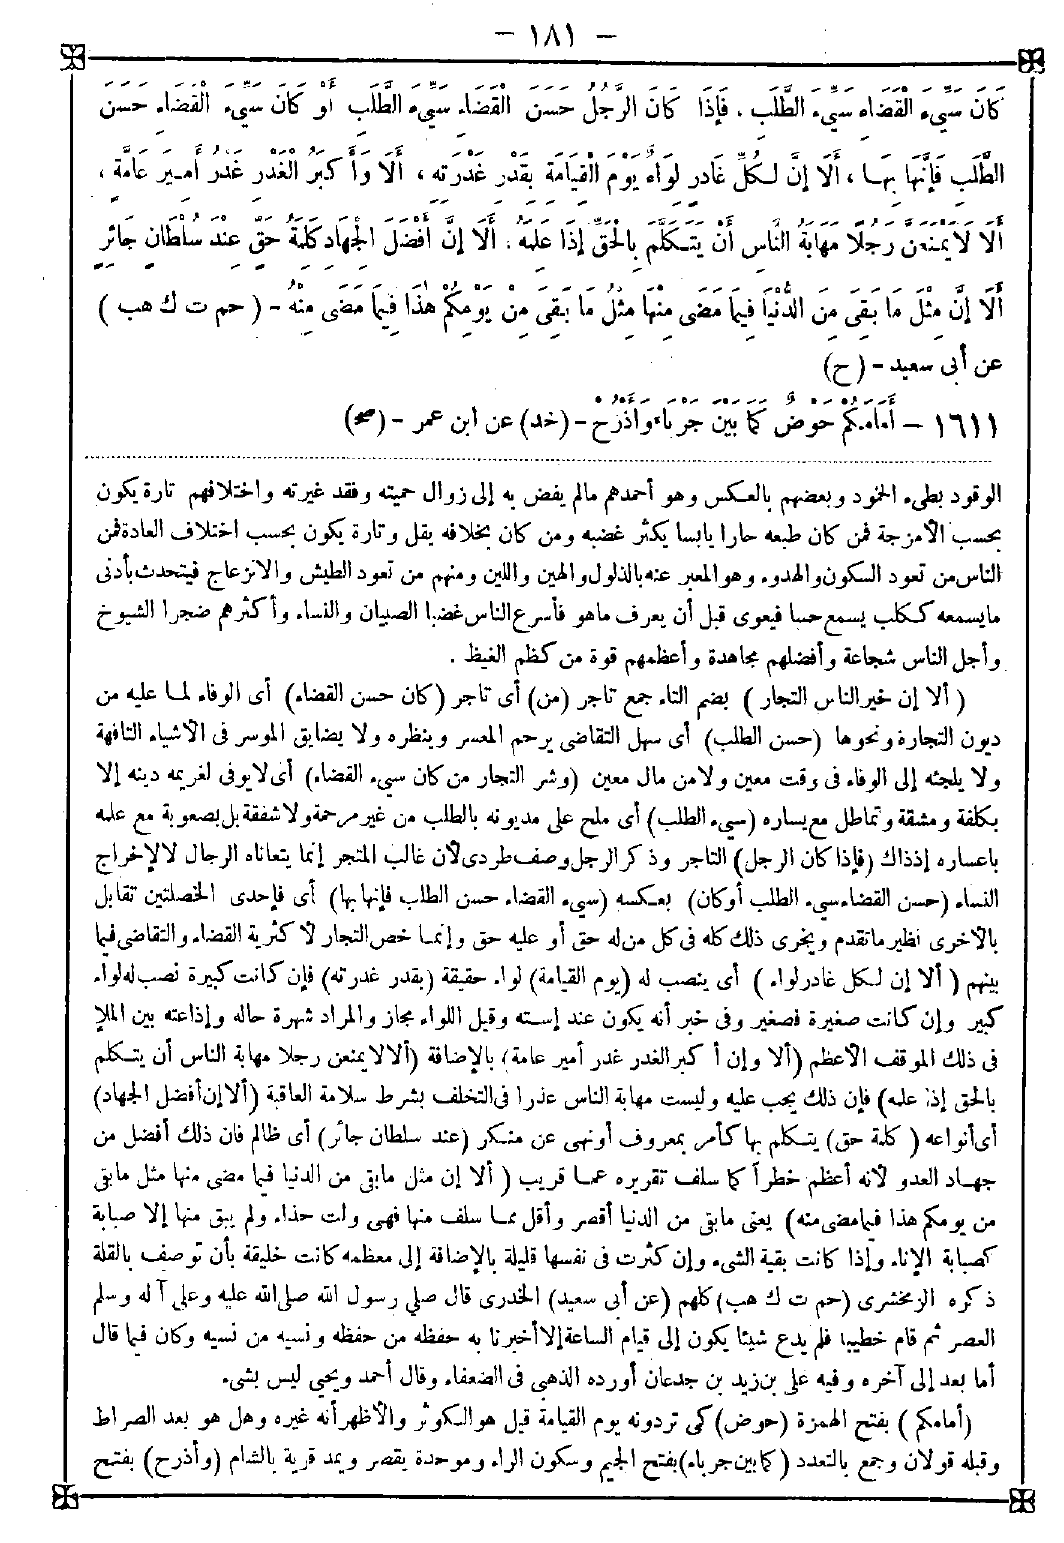 – ١٨١ –
كَانَ سَيِّءَ الْقَضَاءِ سَيِّءَ الطَّلَبِ . فَإِذَا كَانَ الرَّجُلُ حَسَنَ الْقَضَاءِ سَيِّءَ الطَّلَبِ أَوْ كَانَ سَيِّءَ الْقَضَاءِ حَسَنَ
الطَّلَبِ فَإِنَّهَا بِهَا ، أَلَا إِنَّ لِكُلِّ غَادِرٍ لِوَاءً يَوْمَ الْقِيَامَةِ بِقَدْرِ غَدْرَتِهِ ، أَلَا وَأَكْبَرُ الْغَدْرِ غَدْرُ أَمِيرِ عَامَّةٍ ،
أَلَا لَا يَمْنَعَنَّ رَجُلًا مَهَابَةُ النَّاسِ أَنْ يَتَكَلَّمَ بِالْحَقِّ إِذَا عَلِمَهُ . أَلَا إِنَّ أَفْضَلَ الْجِهَادِ كَلِمَةُ حَقٍّ عِنْدَ سُلْطَانٍ جَائِرٍ
أَلَا إِنَّ مِثْلَ مَا بَقِيَ مِنَ الدُّنْيَا فِيمَا مَضَى مِنْهَا مِثْلُ مَا بَقِيَ مِنْ يَوْمِكُمْ هٰذَا فِيمَا مَضَى مِنْهُ – ( حم ت ك هب )
عن أبى سعيد – (ح)
١٦١١ – أَمَامَكُمْ حَوْضٌ كَمَا بَيْنَ جَرْبَاءَ وَأَذْرُحَ – (خد) عن ابن عمر – (صح)
الوقود بطىء الخمود وبعضهم بالعكس وهو أحمدهم مالم يفض به إلى زوال حميته وفقد غيرته واختلافهم تارة يكون
بحسب الأمزجة فمن كان طبعه حارا يابسا يكثر غضبه ومن كان بخلافه يقل وتارة يكون بحسب اختلاف العادة فمن
الناس من تعود السكون والهدوء وهو المعبر عنه بالذلول والهين واللين ومنهم من تعود الطيش والانزعاج فيتحدث بأدنى
مايسمعه ككلب يسمع حسا فيعوى قبل أن يعرف ماهو فأسرع الناس غضبا الصبيان والنساء وأكثرهم ضجرا الشيوخ
وأجل الناس شجاعة وأفضلهم مجاهدة وأعظمهم قوة من كظم الغيظ .
( ألا إن خير الناس التجار ) بضم التاء جمع تاجر (من) أى تاجر (كان حسن القضاء) أى الوفاء لما عليه من
ديون التجارة ونحوها (حسن الطلب) أى سهل التقاضى يرحم المعسر وينظره ولا يضايق الموسر فى الأشياء التافهة
ولا يلجئه إلى الوفاء فى وقت معين ولا من مال معين (وشر التجار من كان سيىء القضاء) أى لايوفى لغريمه دينه إلا
بكلفة ومشقة وتماطل مع يساره (سيىء الطلب) أى ملح على مديونه بالطلب من غير مرحمة ولا شفقة بل بصعوبة مع علمه
باعساره إذذاك (فإذا كان الرجل) التاجر وذكر الرجل وصف طردى لأن غالب المتجر إنما يتعاناه الرجال لا لإخراج
النساء (حسن القضاء سىء الطلب أو كان) بعكسه (سيىء القضاء حسن الطلب فإنها بها) أى فإحدى الخصلتين تقابل
بالأخرى نظير ماتقدم ويجرى ذلك كله فى كل من له حق أو عليه حق وإنما خص التجار لأكثرية القضاء والتقاضى فيما
بينهم ( ألا إن لكل غادر لواء ) أى ينصب له (يوم القيامة) لواء حقيقة (بقدر غدرته) فإن كانت كبيرة نصب له لواء
كبير وإن كانت صغيرة فصغير وفى خبر أنه يكون عند إسته وقيل اللواء مجاز والمراد شهرة حاله وإذاعته بين الملإ
فى ذلك الموقف الأعظم (ألا وإن أكبر الغدر غدر أمير عامة) بالإضافة (ألا لا يمنعن رجلا مهابة الناس أن يتكلم
بالحق إذا علمه) فإن ذلك يجب عليه وليست مهابة الناس عذرا فى التخلف بشرط سلامة العاقبة (ألا إن أفضل الجهاد)
أى أنواعه ( كلمة حق) يتكلم بها كأمر بمعروف أو نهى عن منكر (عند سلطان جائر) أى ظالم فان ذلك أفضل من
جهاد العدو لأنه أعظم خطراً كما سلف تقريره عما قريب ( ألا إن مثل مابقى من الدنيا فيما مضى منها مثل مابقى
من يومكم هذا فيما مضى منه) يعنى مابقى من الدنيا أقصر وأقل مما سلف منها فهى ولت حذاء ولم يبق منها إلا صبابة
كصبابة الإناء وإذا كانت بقية الشىء وإن كثرت فى نفسها قليلة بالإضافة إلى معظمه كانت خليقة بأن توصف بالقلة
ذكره الزمخشرى (حم ت ك هب) كلهم (عن أبى سعيد) الخدرى قال صلى رسول الله صلى الله عليه وعلى آله وسلم
العصر ثم قام خطيبا فلم يدع شيئا يكون إلى قيام الساعة إلا أخبرنا به حفظه من حفظه ونسيه من نسيه وكان فيما قال
أما بعد إلى آخره وفيه على بن زيد بن جدعان أورده الذهبى فى الضعفاء وقال أحمد ويحيى ليس بشىء
(أمامكم ) بفتح الهمزة (حوض) كى تردونه يوم القيامة قيل هو الكوثر والأظهر أنه غيره وهل هو بعد الصراط
وقبله قولان وجمع بالتعدد ( كما بين جرباء) بفتح الجيم وسكون الراء وموحدة يقصر ويمد قرية بالشام (وأذرح) بفتح